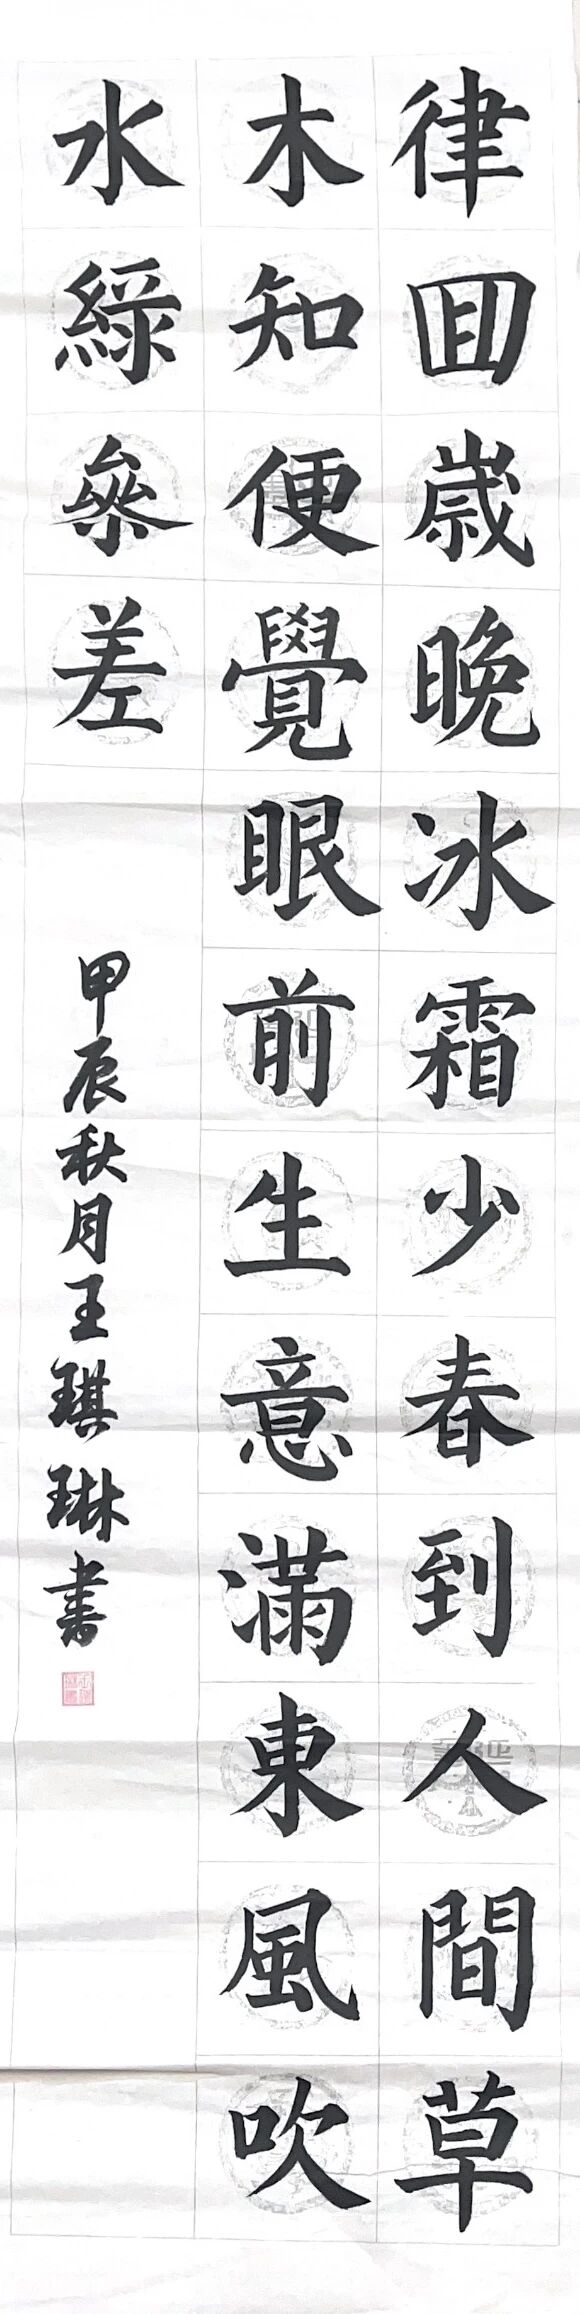 律回歲晚冰霜少春到人間草
木知便覺眼前生意滿東風吹
水綠參差
甲辰秋月王琪琳書